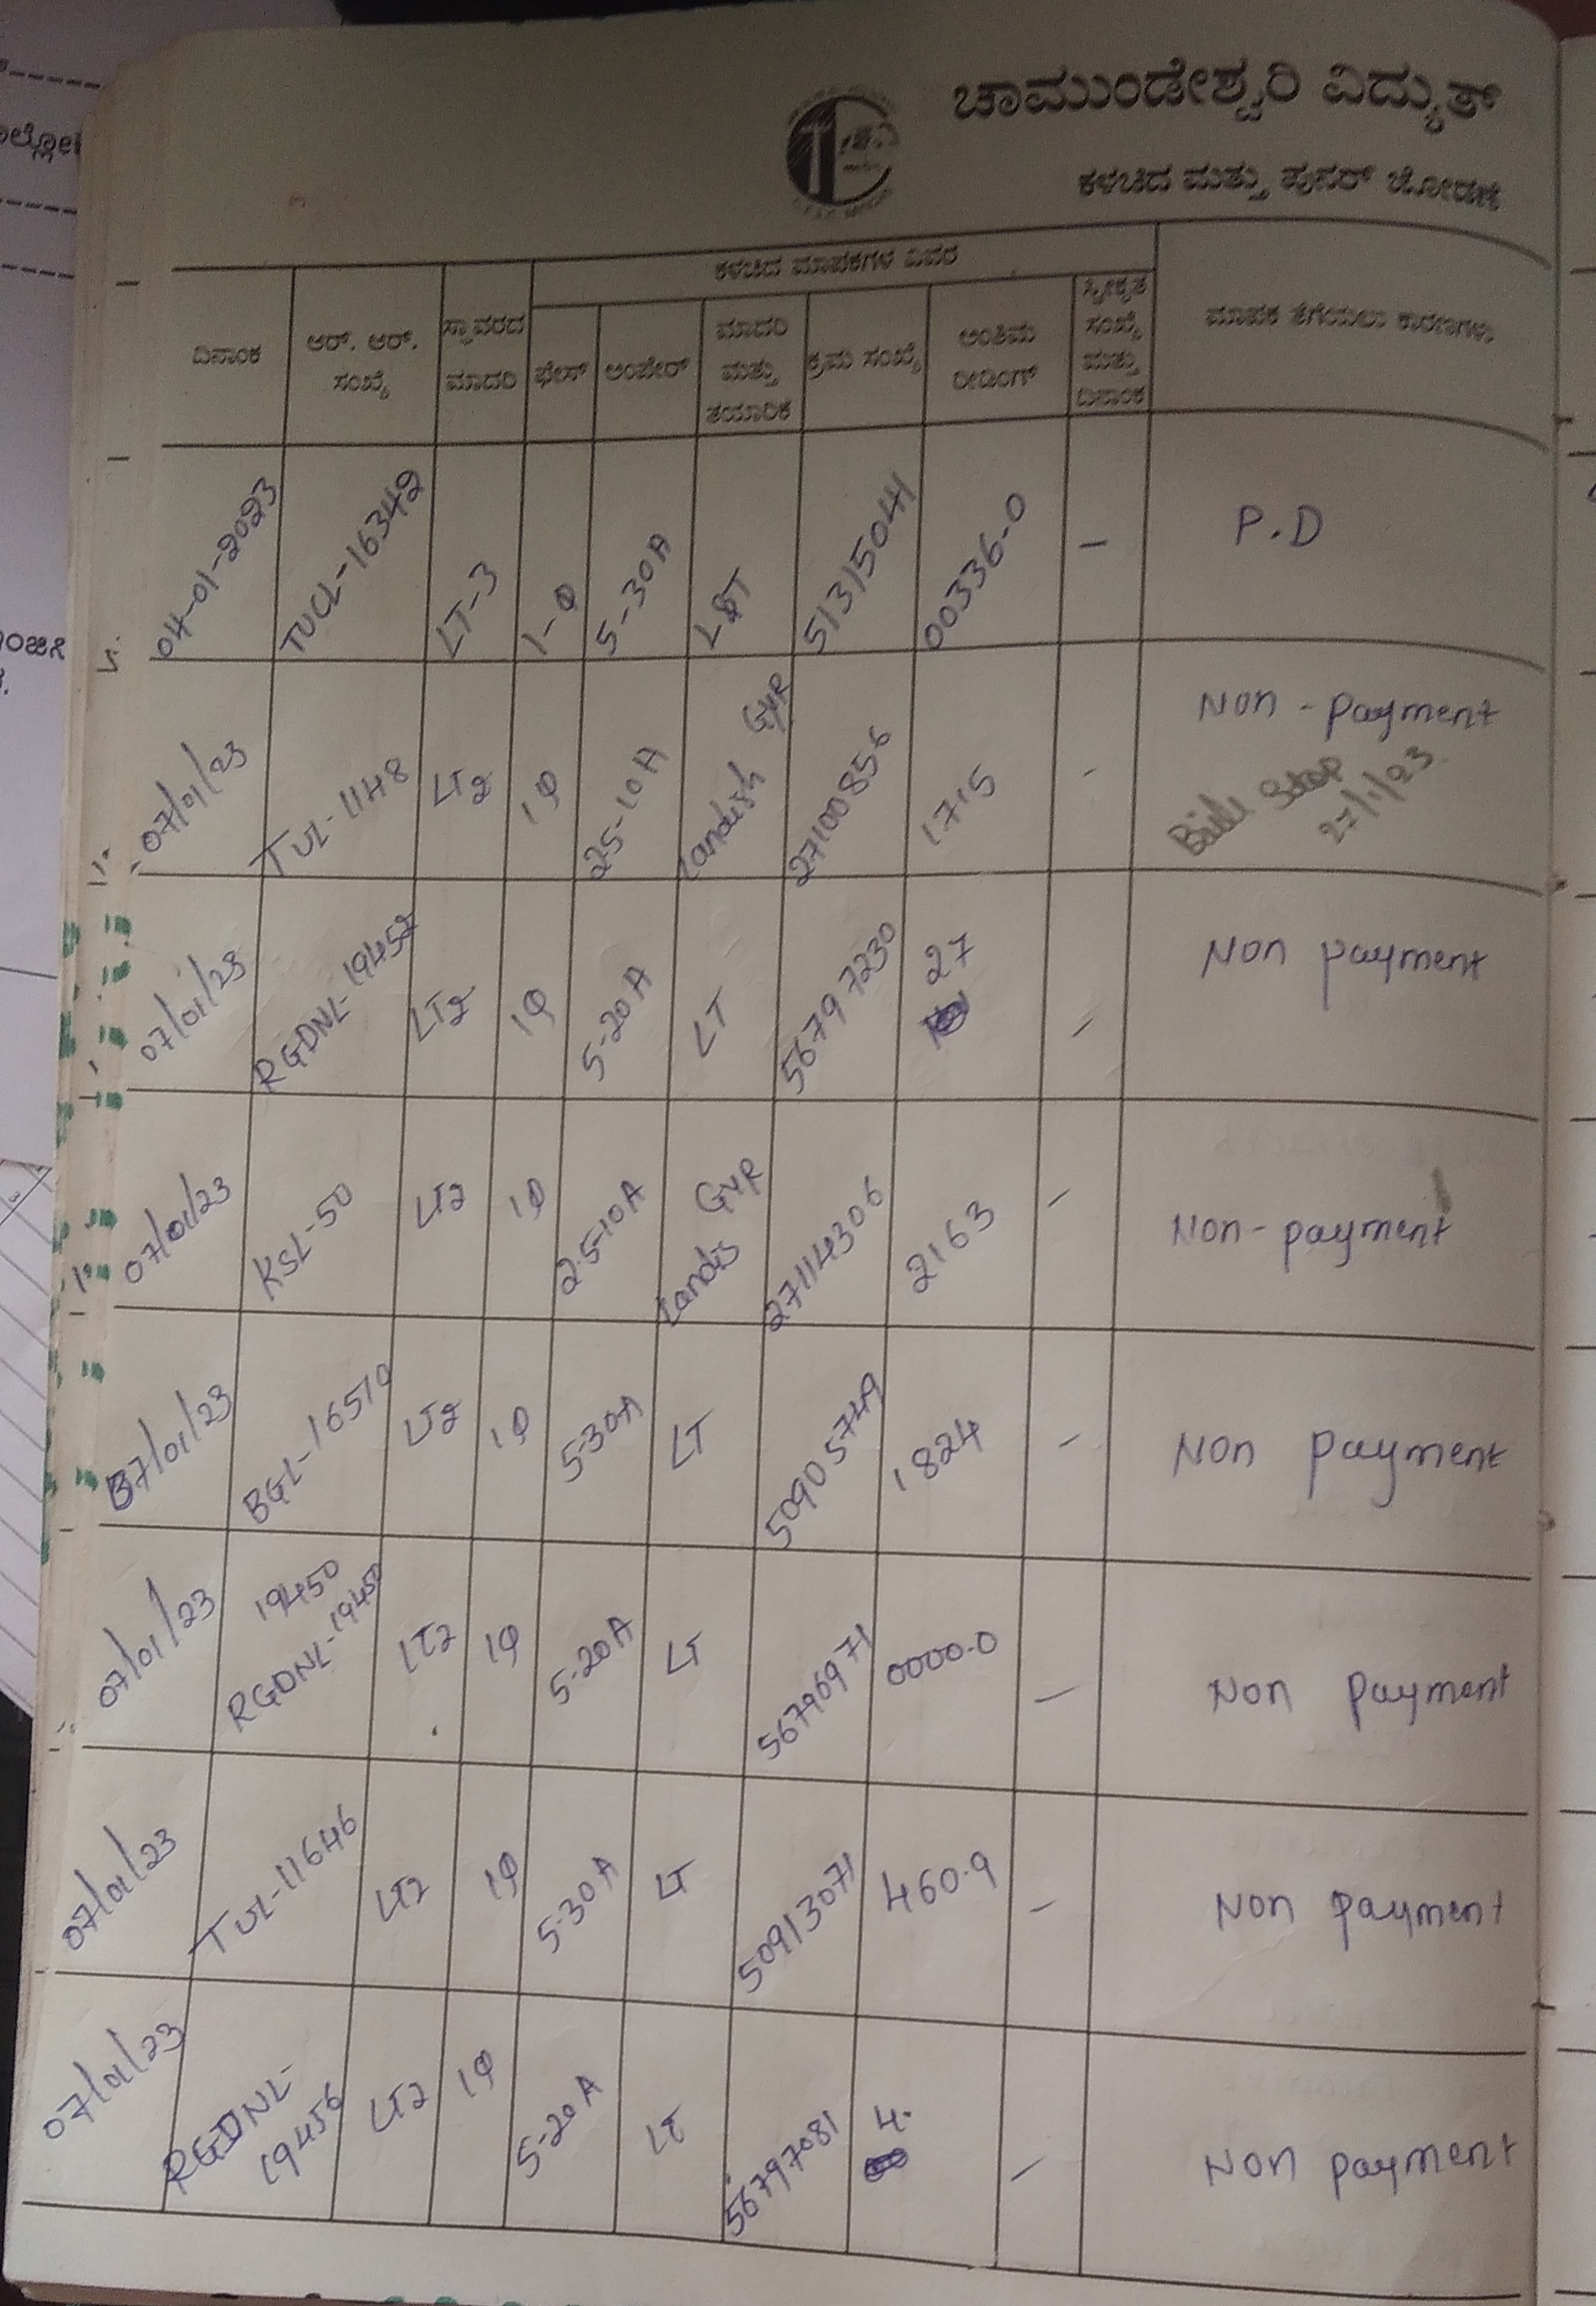 ಚಾಮುಂಡೇಶ್ವರಿ ವಿದ್ಯುತ್
ಕಳಚಿದ ಮತ್ತು ಪುನರ್ ಜೋಡಣೆ
ಕಳಚಿದ ಮಾಪಕಗಳ ವಿವರ
ದಿನಾಂಕ
ಆರ್. ಆರ್.
ಸಂಖ್ಯೆ
ಸ್ಥಾವರದ
ಮಾದರಿ
ಫೇಸ್
ಅಂಪೇರ್
ಮಾದರಿ
ಮತ್ತು
ತಯಾರಿಕ
ಕ್ರಮ ಸಂಖ್ಯೆ
ಅಂತಿಮ
ರೀಡಿಂಗ್
ಸ್ವೀಕೃತ
ಸಂಖ್ಯೆ
ಮತ್ತು
ದಿನಾಂಕ
ಮಾಪಕ ತೆಗೆಯಲು ಕಾರಣಗಳು
04-01-2023 TUCL-16342 LT-3 1-Φ 5-30A L&T 51315041 00336-0 - P.D
07/01/23 TUL-1148 LT2 1Φ 2.5-10A Landish Gyr 27100856 1715 - Non-payment
Bill Stop
27/1/23
07/01/23 RGDNL-19452 LT2 1Φ 5-20A LT 56797230 27 - Non payment
07/01/23 KSL-50 LT2 1Φ 2.5-10A Landis Gyr 27114306 2163 - Non-payment
07/01/23 BGL-16510 LT2 1Φ 5-30A LT 50905749 1824 - Non payment
19450
07/01/23 RGDNL-19450 LT2 1Φ 5-20A LT 56796971 0000.0 - Non payment
07/01/23 TUL-11646 LT2 1Φ 5-30A LT 50913071 460.9 - Non payment
07/01/23 RGDNL-19456 LT2 1Φ 5-20A LT 56797081 4. - Non payment